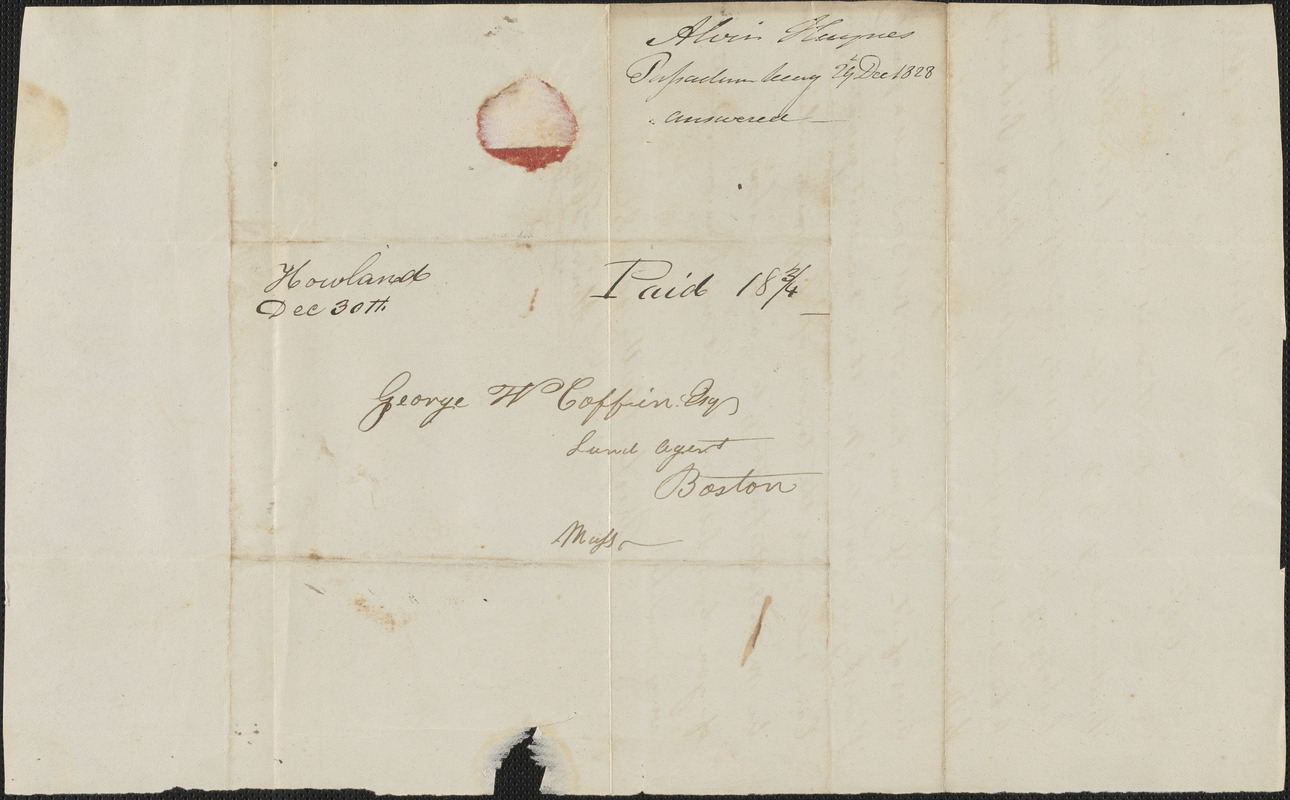 Alvin Haynes
Passadumkeag 29 Dec 1828
answered
Howland
Dec 30th
Paid 18 3/4
George W Coffin Esq
Land Agent
Boston
Mass